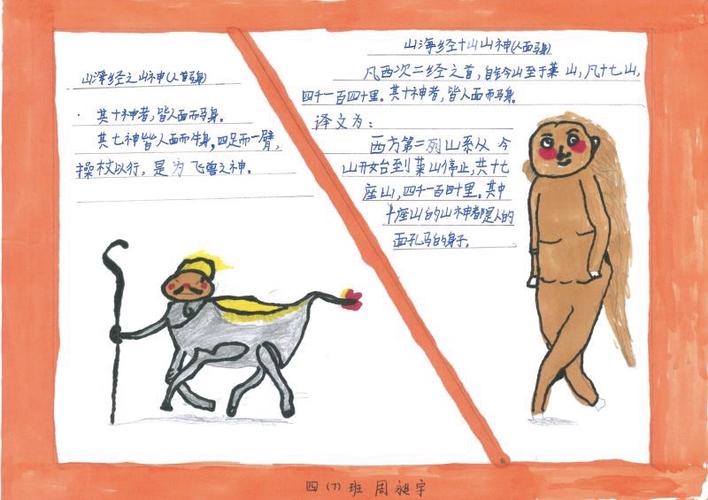 山海经之山神(人首马身)
· 其十神者,皆人面而马身。
其七神皆人面而牛身,四足而一臂,
操杖以行,是为飞兽之神。
山海经十山山神(人面马身)
凡西次二经之首,自钤山至于莱山,凡十七山,
四千一百四十里。其十神者,皆人面而马身。
译文为:
西方第二列山系从今
山开始台到莱山停止,共十七
座山,四千一百四十里。其中
十座山的山神都是人的
面孔马的身子。
四(7)班 周昶宇